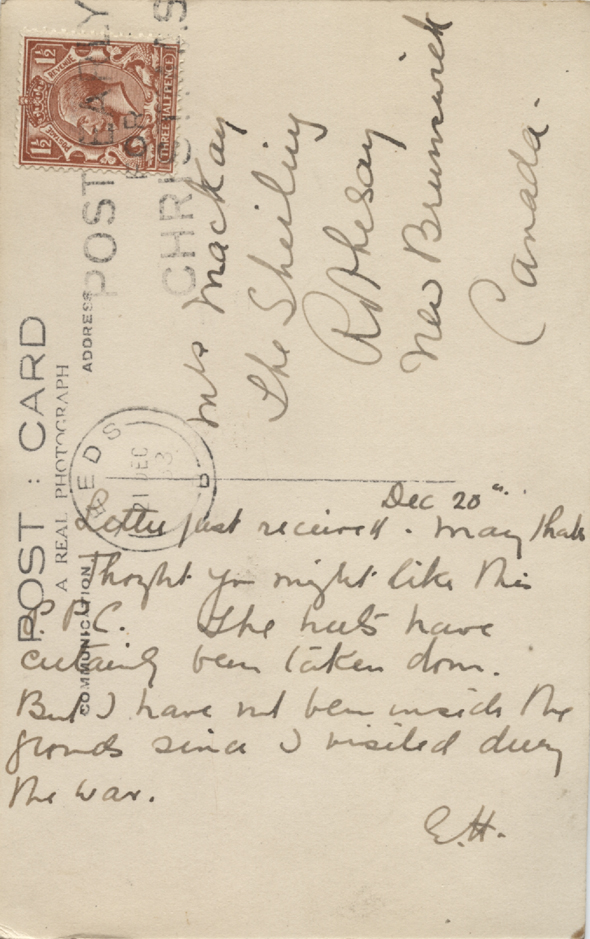 POST EARLY
FOR
CHRISTMAS
1½ 1½
REVENUE
THREE HALFPENCE
POST : CARD
A REAL PHOTOGRAPH
ADDRESS
COMMUNICATION
LEEDS
21 DEC
Mrs MacKay
The Sheiling
Rothesay
New Brunswick
Canada.
Dec 20th.
Letter just received. Many thanks
Thought you might like this
P.C. The huts have
certainly been taken down.
But I have not been inside the
grounds since I visited during
the war.
E.H.